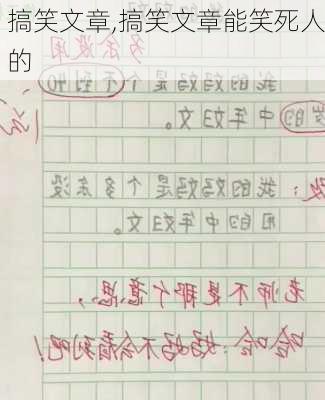 搞笑文章,搞笑文章能笑死人
的
多余没用
我的妈妈是个不到40
岁的中年妇女。
我的妈妈是个多余没
用的中年妇女。
老师不是那个意思，
哈哈：妈妈不会看到吧！